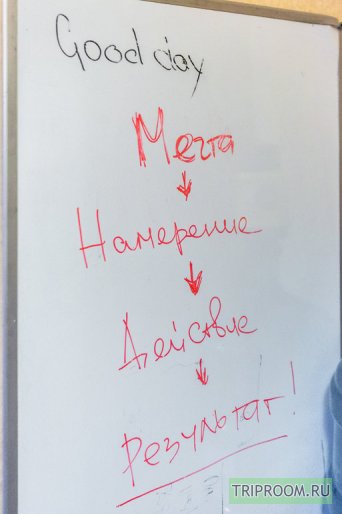 Good day
Мечта
↓
Намерение
↓
Действие
↓
Результат!
TRIPROOM.RU